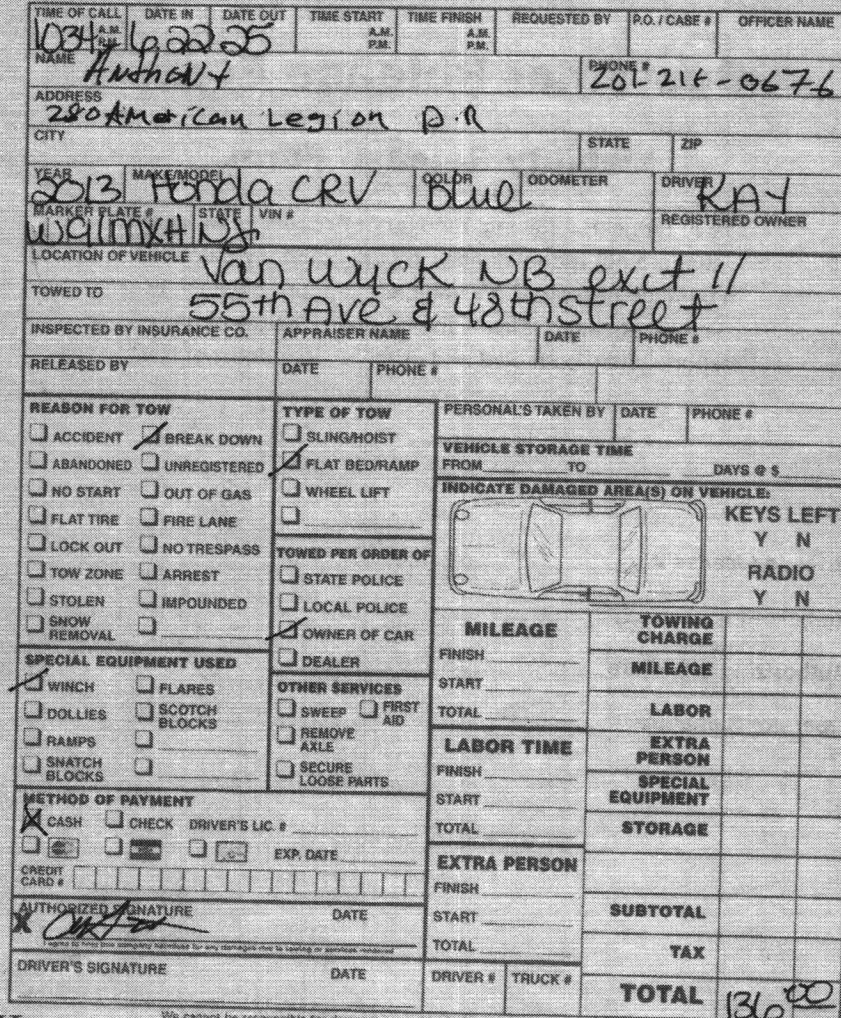 TIME OF CALL DATE IN DATE OUT TIME START TIME FINISH REQUESTED BY P.O. / CASE # OFFICER NAME
1034 A.M. P.M. 6.22.25 A.M. P.M. A.M. P.M.
NAME PHONE #
Anthony 201-218-0676
ADDRESS
280 American Legion D.R
CITY STATE ZIP
YEAR MAKE/MODEL COLOR ODOMETER DRIVER
2013 Honda CRV Blue KAY
MARKER PLATE # STATE VIN # REGISTERED OWNER
W91MXH NJ
LOCATION OF VEHICLE Van Wyck NB exit 11
TOWED TO 55th Ave & 48th Street
INSPECTED BY INSURANCE CO. APPRAISER NAME DATE PHONE #
RELEASED BY DATE PHONE #
REASON FOR TOW
ACCIDENT BREAK DOWN
ABANDONED UNREGISTERED
NO START OUT OF GAS
FLAT TIRE FIRE LANE
LOCK OUT NO TRESPASS
TOW ZONE ARREST
STOLEN IMPOUNDED
SNOW REMOVAL
TYPE OF TOW
SLING/HOIST
FLAT BED/RAMP
WHEEL LIFT
TOWED PER ORDER OF
STATE POLICE
LOCAL POLICE
OWNER OF CAR
DEALER
PERSONAL'S TAKEN BY DATE PHONE #
VEHICLE STORAGE TIME
FROM TO DAYS @ $
INDICATE DAMAGED AREA(S) ON VEHICLE:
KEYS LEFT
Y N
RADIO
Y N
SPECIAL EQUIPMENT USED
WINCH FLARES
DOLLIES SCOTCH BLOCKS
RAMPS
SNATCH BLOCKS
OTHER SERVICES
SWEEP FIRST AID
REMOVE AXLE
SECURE LOOSE PARTS
MILEAGE
FINISH
START
TOTAL
LABOR TIME
FINISH
START
TOTAL
EXTRA PERSON
FINISH
START
TOTAL
TOWING CHARGE
MILEAGE
LABOR
EXTRA PERSON
SPECIAL EQUIPMENT
STORAGE
SUBTOTAL
TAX
TOTAL 136 00
METHOD OF PAYMENT
CASH CHECK DRIVER'S LIC. #
EXP. DATE
CREDIT CARD #
AUTHORIZED SIGNATURE DATE
X
I agree to hold this company harmless for any damages due to towing or services rendered
DRIVER'S SIGNATURE DATE DRIVER # TRUCK #
We cannot be responsible for